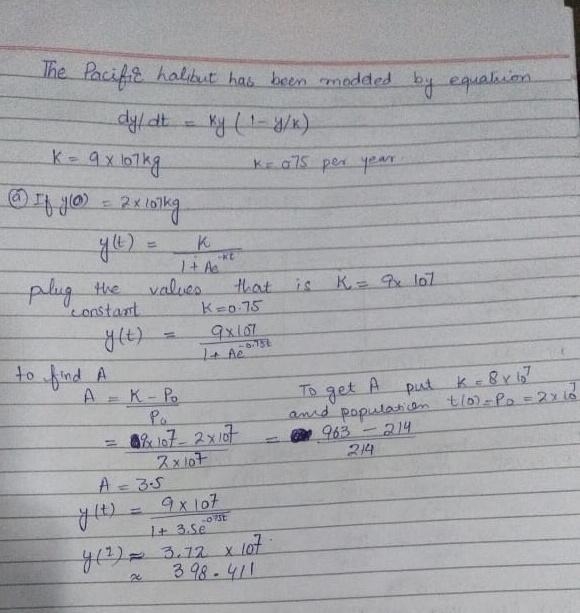 The Pacific halibut has been modded by equation
dy/dt = Ky (1 - y/K)
K = 9 x 107 kg K = 075 per year
ⓐ If y(0) = 2 x 107kg
y(t) = K / 1 + Ae^-Kt
plug the values that is K = 9x 107
constant K = 0.75
y(t) = 9x107 / 1 + Ae^-0.75t
to find A
A = K - P₀ / P₀
To get A put K = 8 x 10⁷
and population t(0) = P₀ = 2 x 10⁷
= 9x 107 - 2 x 107 / 2 x 107 = 963 - 214 / 214
A = 3.5
y(t) = 9 x 107 / 1 + 3.5e^-075t
y(1) ≈ 3.72 x 107
≈ 398.411